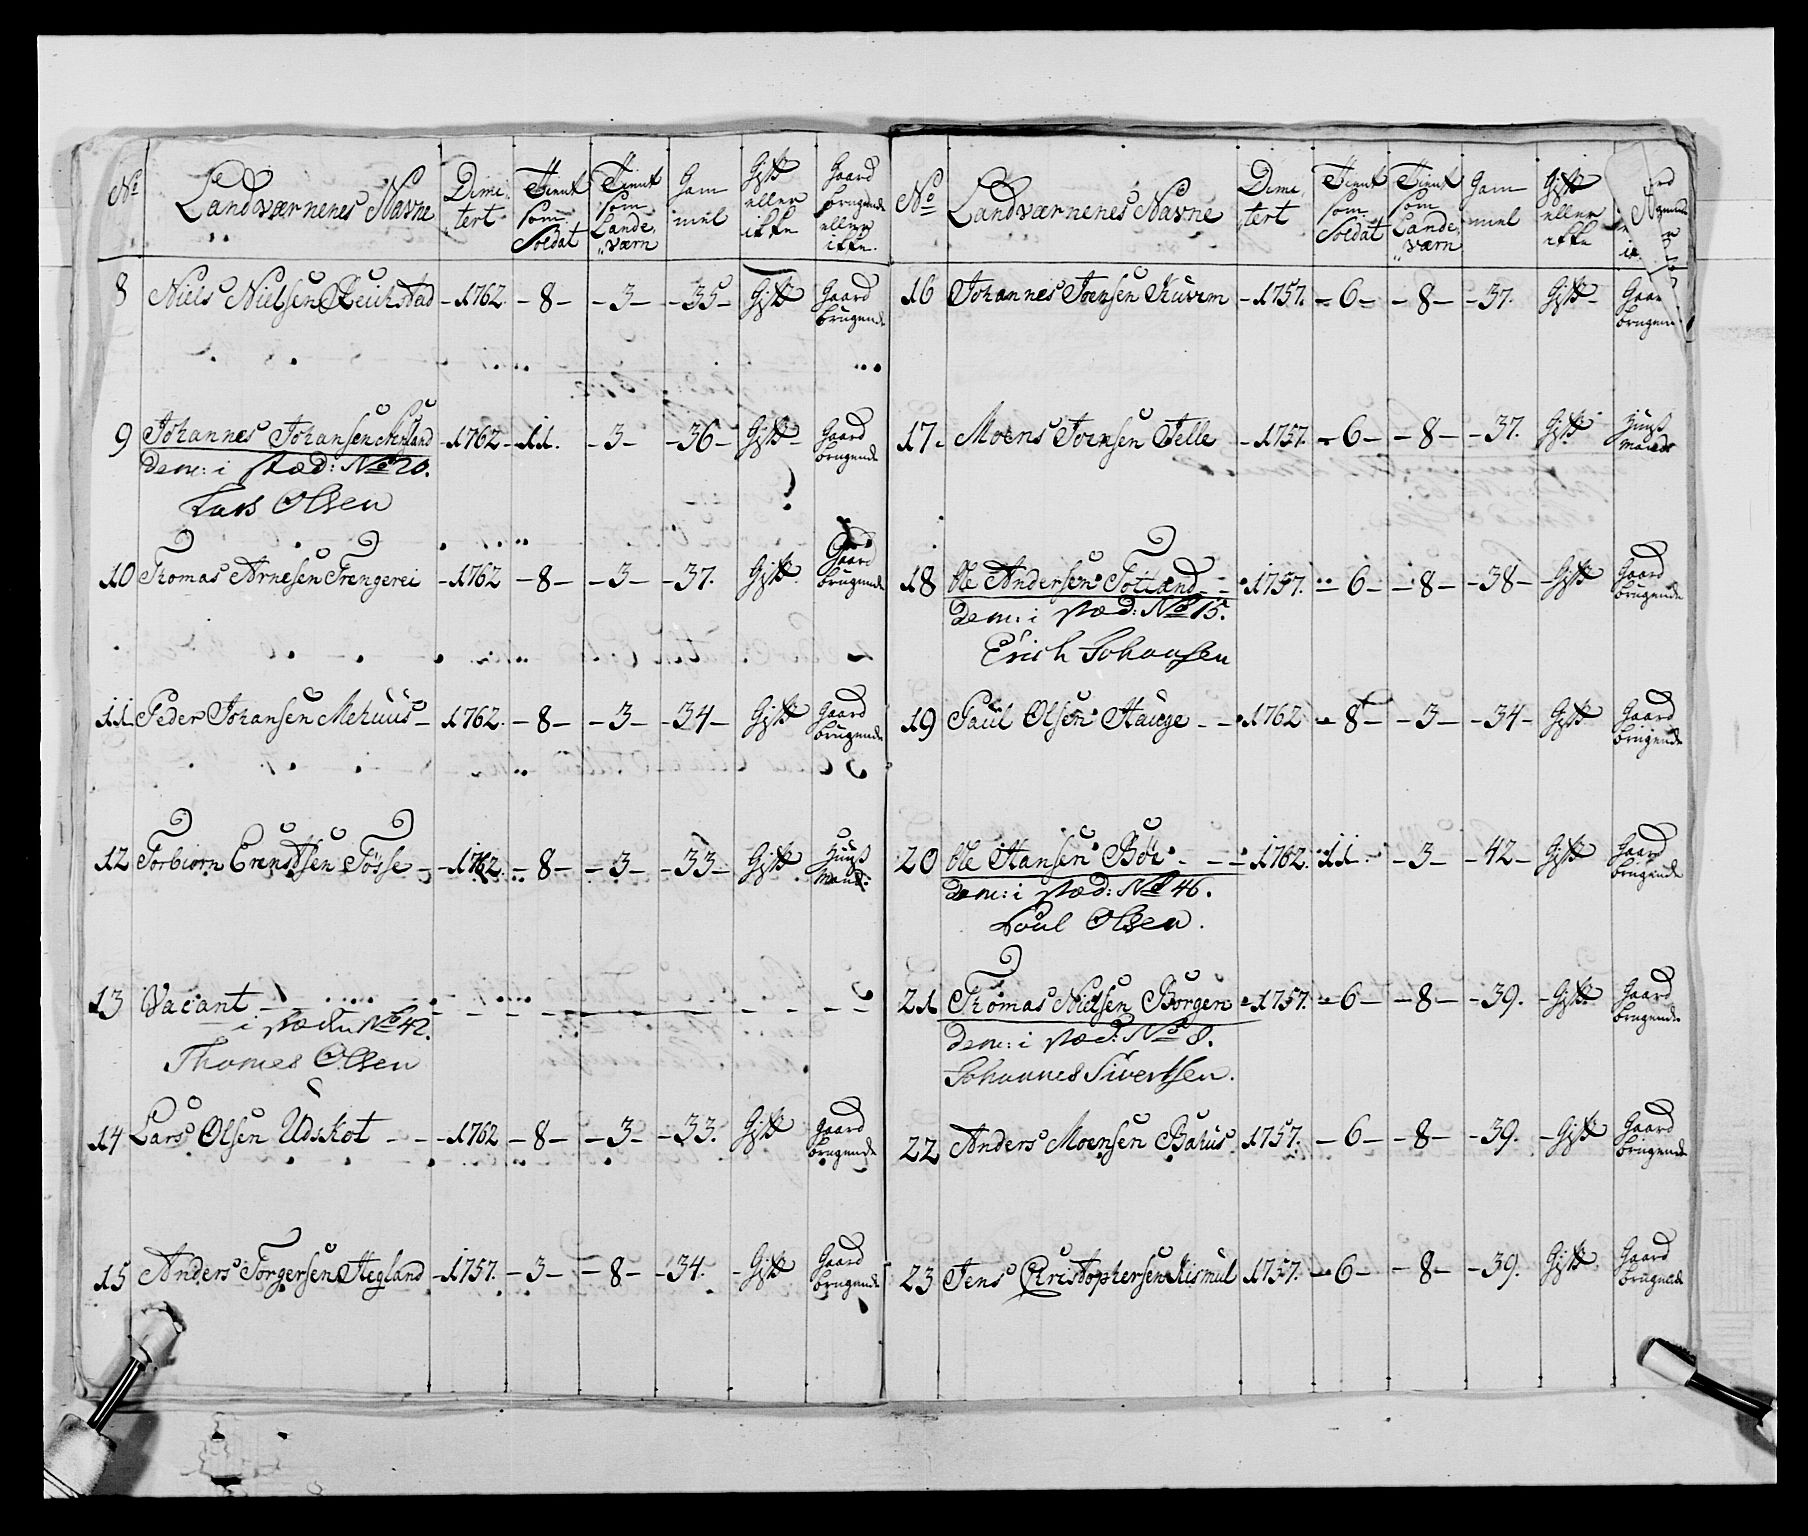 No Landværnenes Navne Dimitert Tient som Soldat Tient som Lande„værn Gammel Gift eller ikke Gaard brugende eller ikke.
8 Niels Nielsen Reichstad -1762. -8- -3- -35- Gift Gaard brugende
9 Johannes Johansen -1762- 11. -3- -36- Gift- Gaard brugende
Dem: i stæd: No 20.
Lars Olsen
10 Thomas Arnesen Trengerei -1762 -8- -3- -37. Gift Gaard brugende
11 Peder Johansen Mehuus- -1762. -8- -3- -34- Gift Gaard brugende
12 Torbiorn Erenstsen Tösse - -1762. -8- -3- -33- Gift Huuß Mand:
13 Vacant
i stæden No 42.
Thomes Olsen
14 Lars Olsen Udskot - - -1762 -8- -3- -33. Gift Gaard brugende
15 Anders Torgersen Hegland -1757. -3- -8- -34. Gift Gaard brugende
No Landværnenes Navne Dimitert Tient som Soldat Tient som Lande„værn Gammel Gift eller ikke
16 Johannes Joensen Kuven -1757. -6- -8- -37. Gift- Gaard brugen
17- Moens Joensen Telle -1757. -6- -8- -37. Gift Huuß Mands
18 Ole Andersen Totland - - 1757. -6- -8- -38- -Gift Gaard brugende
Dem: i stæd: No 15.
Erich Johansen
19 Paul Olsen Hauge - - 1762 -8- -3- -34- Gift Gaard brugende
20 Ole Hansen Böe - - - 1762. 11 -3- -42- Gift Gaard brugende
Dem: i stæd: No 46.
Poul Olsen.
21 Thomas Nielsen Borgen -1757. -6- -8- -39. -Gift Gaard brugende
Dem: i stæd: No 8.
Johannes Sivertsen.
22 Anders Moensen Bahus 1757. -6- -8- -39. -Gift Gaard brugende
23 Jens Christophersen Kismul 1757. -6- -8- -39. Gift Gaard brugende